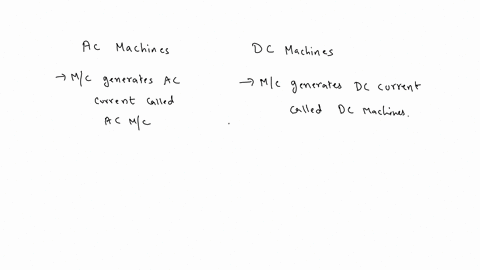 AC Machines
→ M/C generates AC
current called
AC M/C
DC Machines
→ M/C generates DC current
called DC Machines.